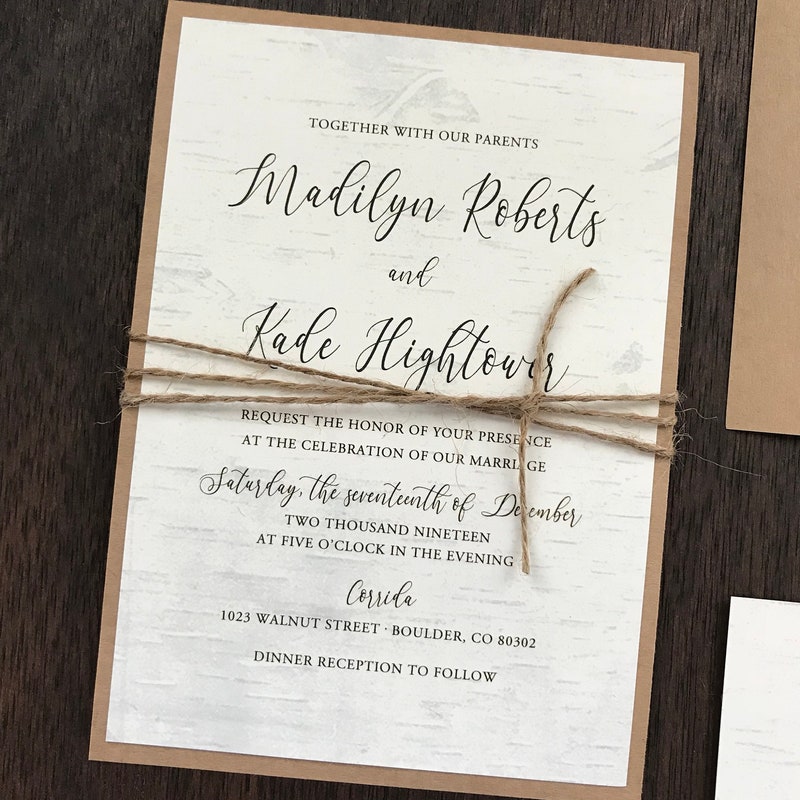 TOGETHER WITH OUR PARENTS
Madilyn Roberts
and
Kade Hightower
REQUEST THE HONOR OF YOUR PRESENCE
AT THE CELEBRATION OF OUR MARRIAGE
Saturday, the seventeenth of December
TWO THOUSAND NINETEEN
AT FIVE O'CLOCK IN THE EVENING
Corrida
1023 WALNUT STREET · BOULDER, CO 80302
DINNER RECEPTION TO FOLLOW